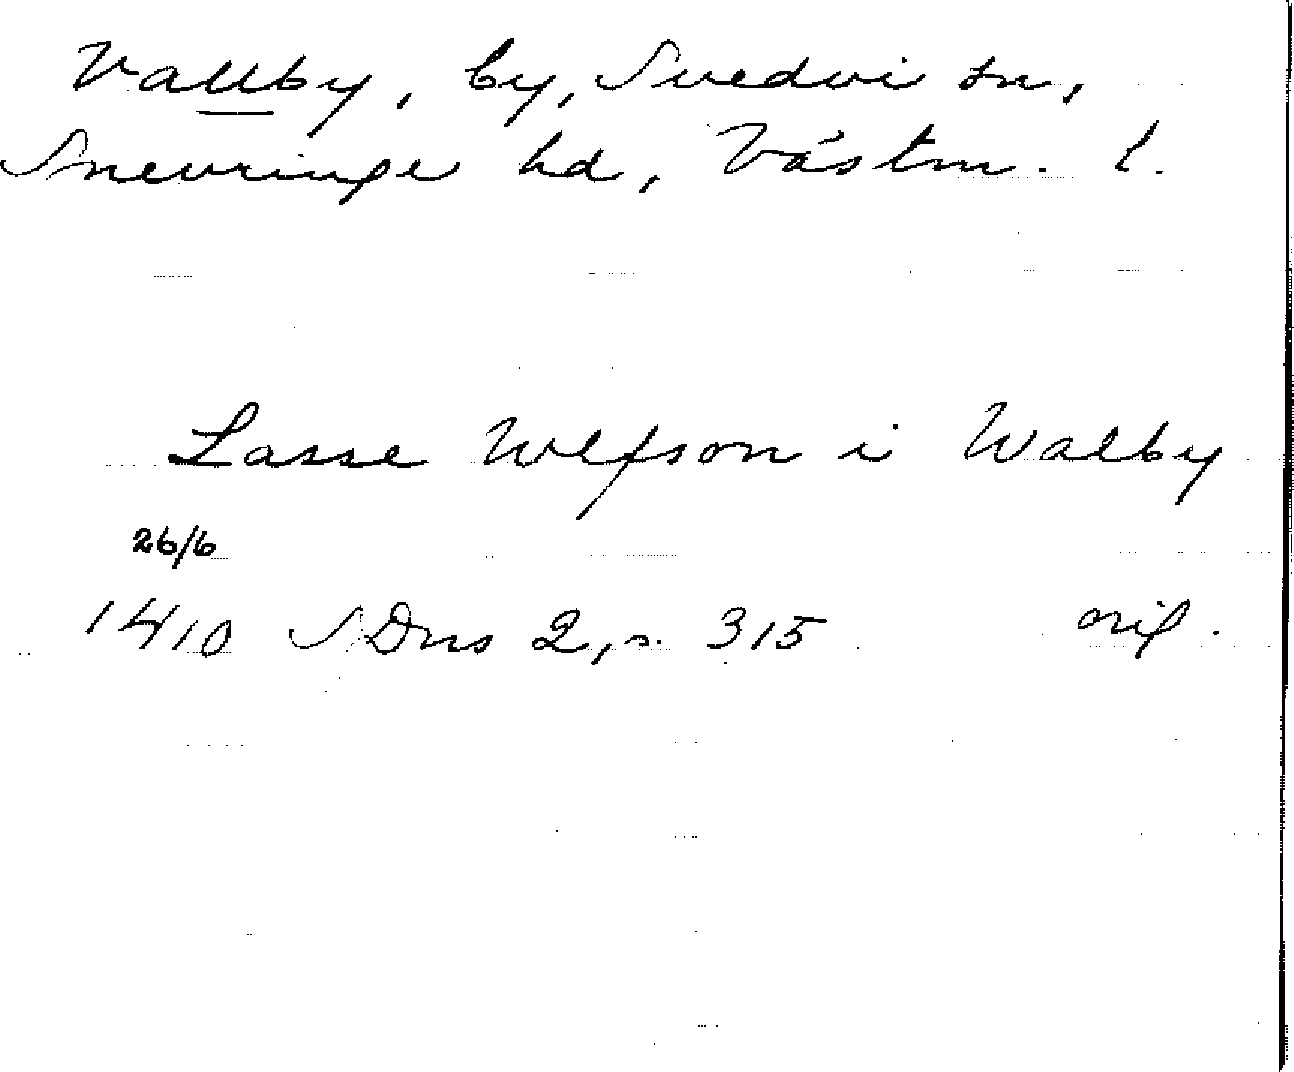 Vallby, by, Svedvi sn,
Snevringe hd, Västm. l.
Lasse Wlfson i Walby
26/6
1410 SDns 2, s. 315 orig.